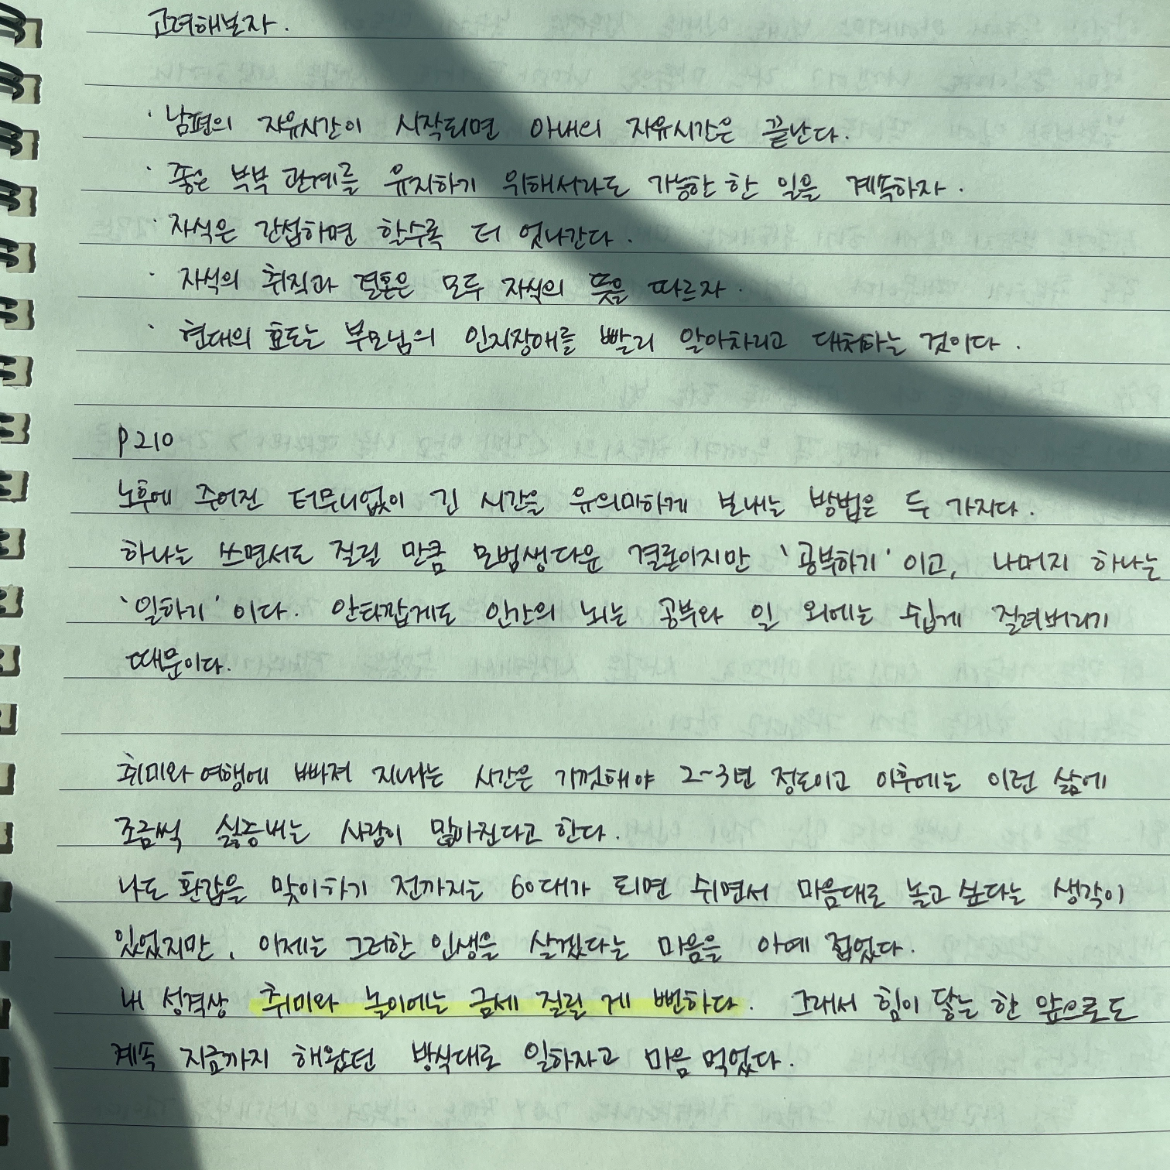 고려해보자.
· 남편의 자유시간이 시작되면 아내의 자유시간은 끝난다.
· 좋은 부부 관계를 유지하기 위해서라도 가능한 한 일을 계속하자.
· 자식은 간섭하면 할수록 더 엇나간다.
· 자식의 취직과 결혼은 모두 자식의 뜻을 따르자.
· 현대의 효도는 부모님의 인지장애를 빨리 알아차리고 대처하는 것이다.
p210
노후에 주어진 터무니없이 긴 시간을 유의미하게 보내는 방법은 두 가지다.
하나는 쓰면서도 질릴 만큼 모범생다운 결론이지만 '공부하기'이고, 나머지 하나는
'일하기'이다. 안타깝게도 인간의 뇌는 공부와 일 외에는 쉽게 질려버리기
때문이다.
취미와 여행에 빠져 지내는 시간은 기껏해야 2~3년 정도이고 이후에는 이런 삶에
조금씩 싫증내는 사람이 많아진다고 한다.
나도 환갑을 맞이하기 전까지는 60대가 되면 쉬면서 마음대로 놀고 싶다는 생각이
있었지만, 이제는 그러한 인생을 살겠다는 마음을 아예 접었다.
내 성격상 취미와 놀이에는 금세 질릴 게 뻔하다. 그래서 힘이 닿는 한 앞으로도
계속 지금까지 해왔던 방식대로 일하자고 마음 먹었다.